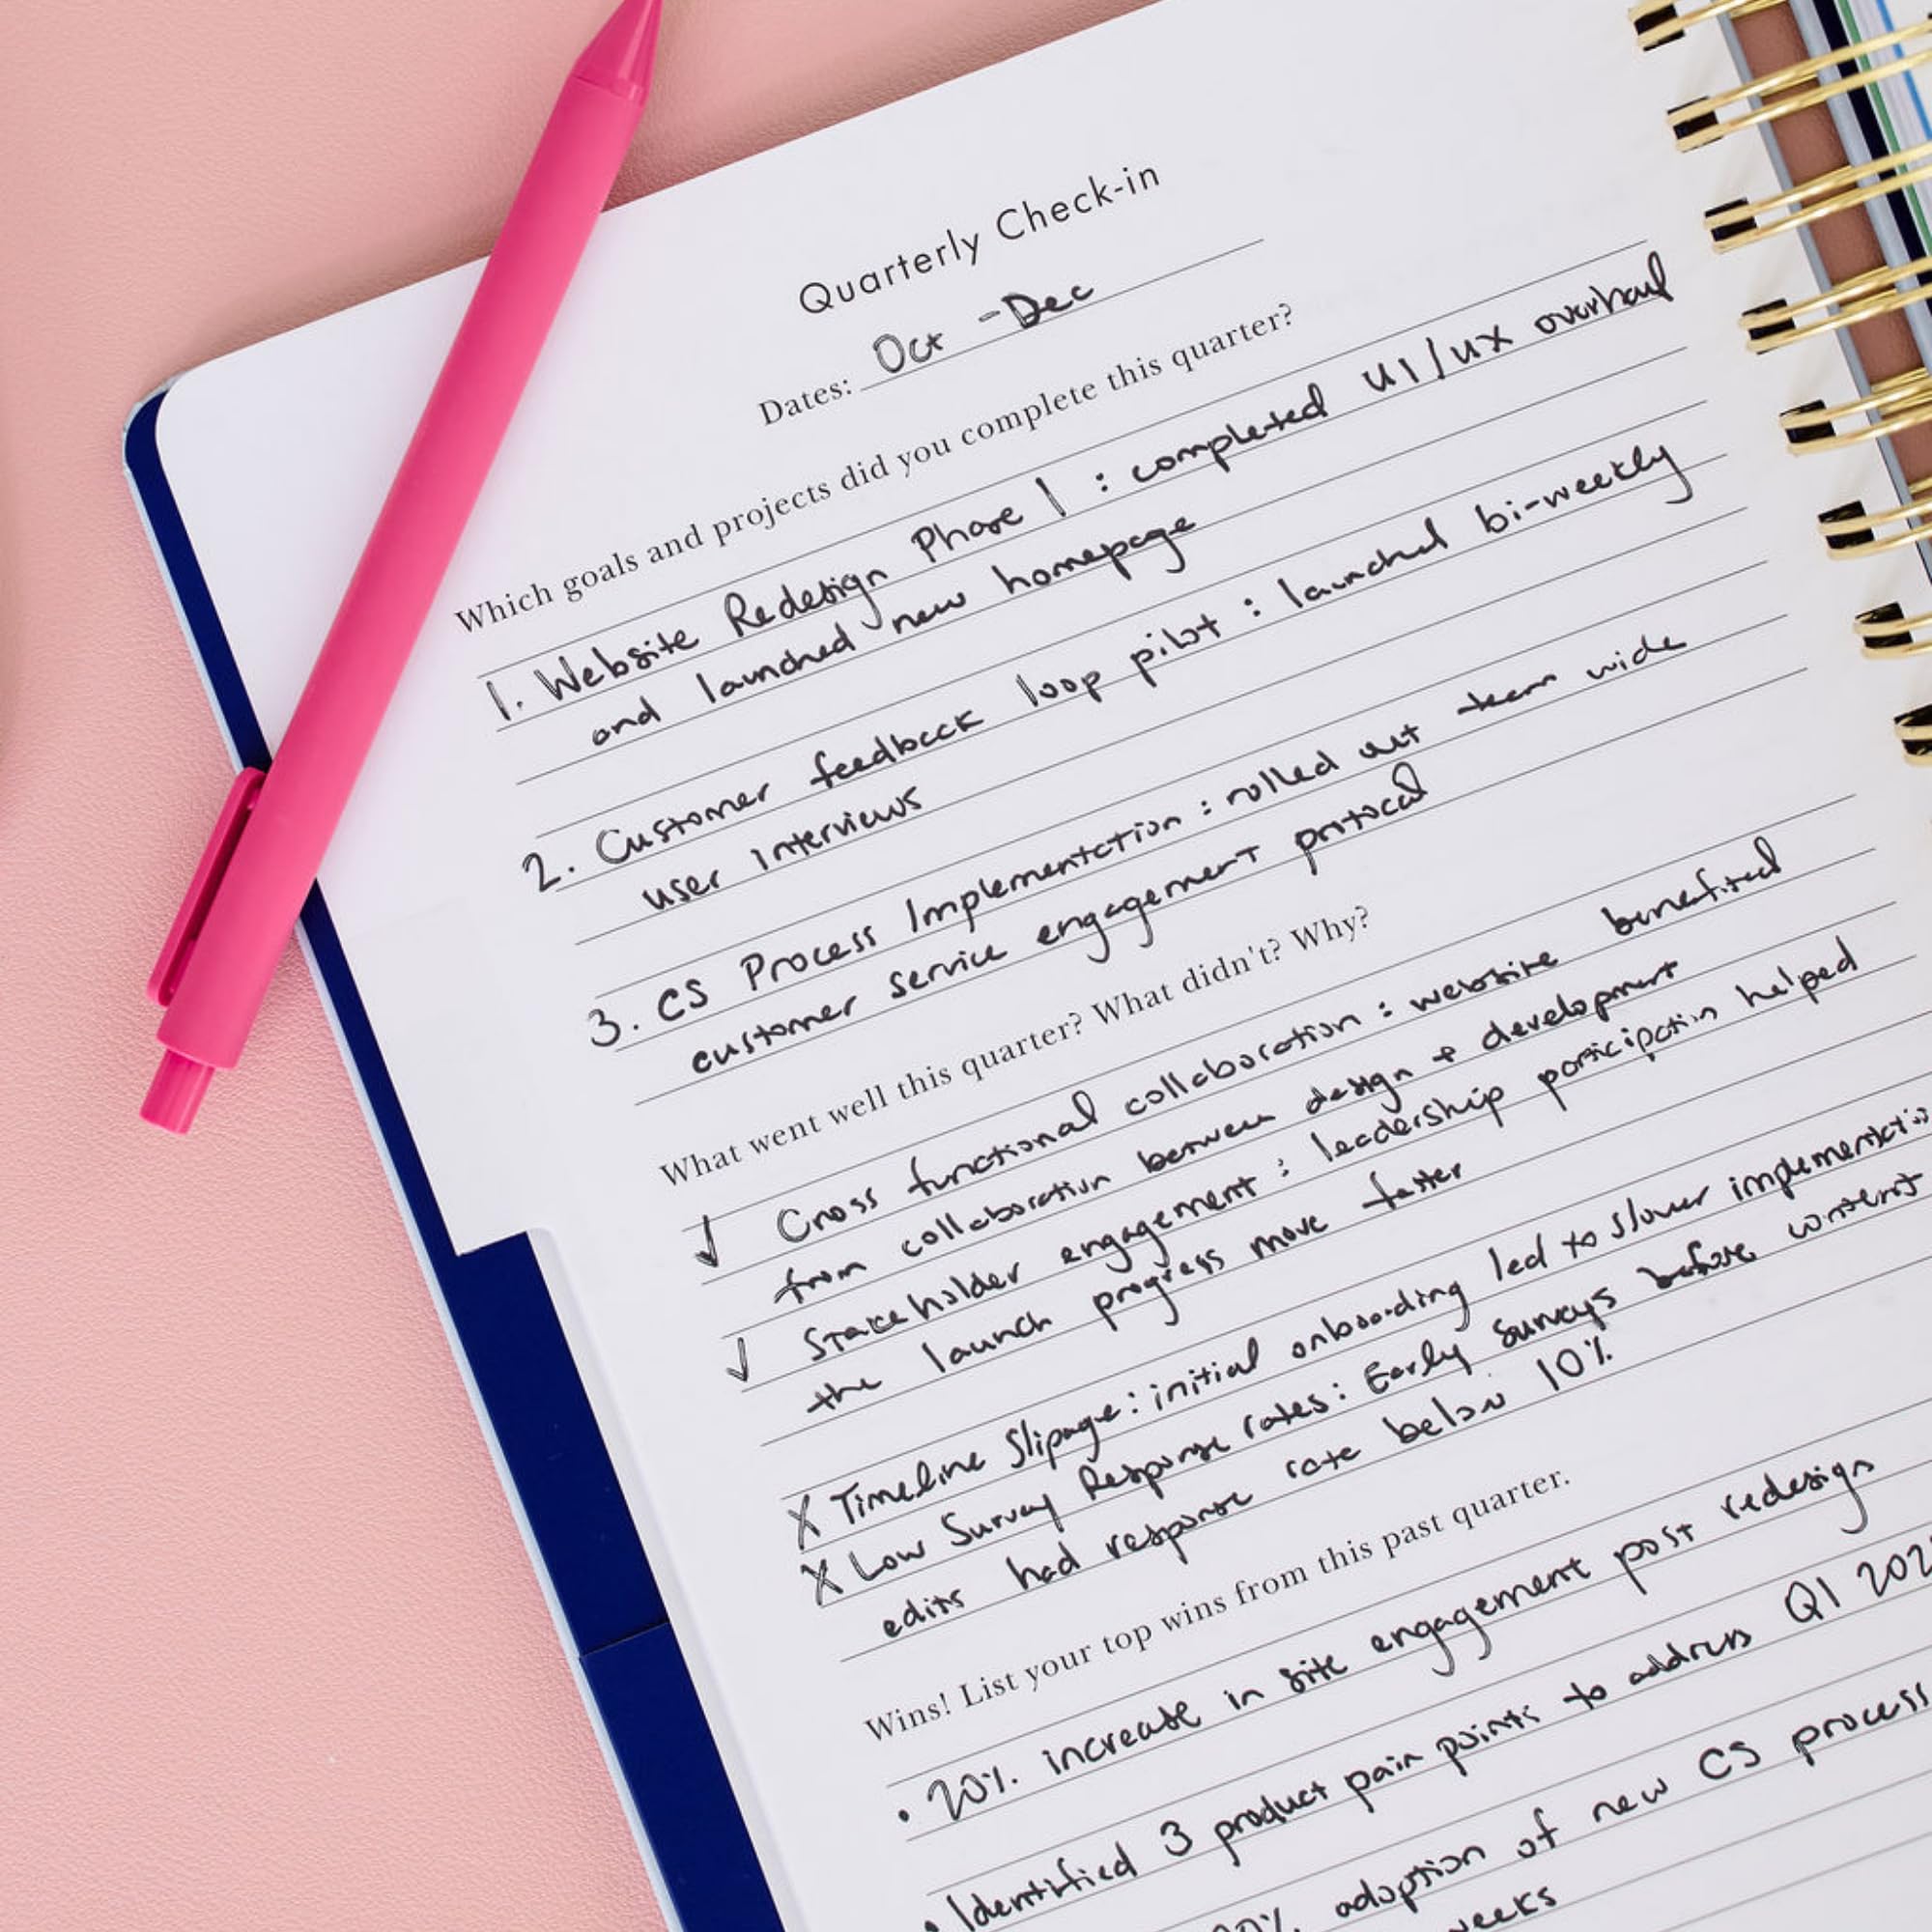 Quarterly Check-in
Dates: Oct - Dec
Which goals and projects did you complete this quarter?
1. Website Redesign Phase 1 : completed UI/UX overhaul
and launched new homepage
2. Customer feedback loop pilot : launched bi-weekly
user interviews
3. CS Process Implementation : rolled out team wide
customer service engagement protocol
What went well this quarter? What didn't? Why?
✓ Cross functional collaboration : website benefited
from collaboration between design + development
✓ Stakeholder engagement : leadership participation helped
the launch progress move faster
X Timeline Slipage : initial onboarding led to slower
X Low Survey Response rates : Early surveys before content
edits had response rate below 10%
Wins! List your top wins from this past quarter.
• 20% increase in site engagement post redesign
• Identified 3 product pain points to address Q1
adoption of new CS process
weeks